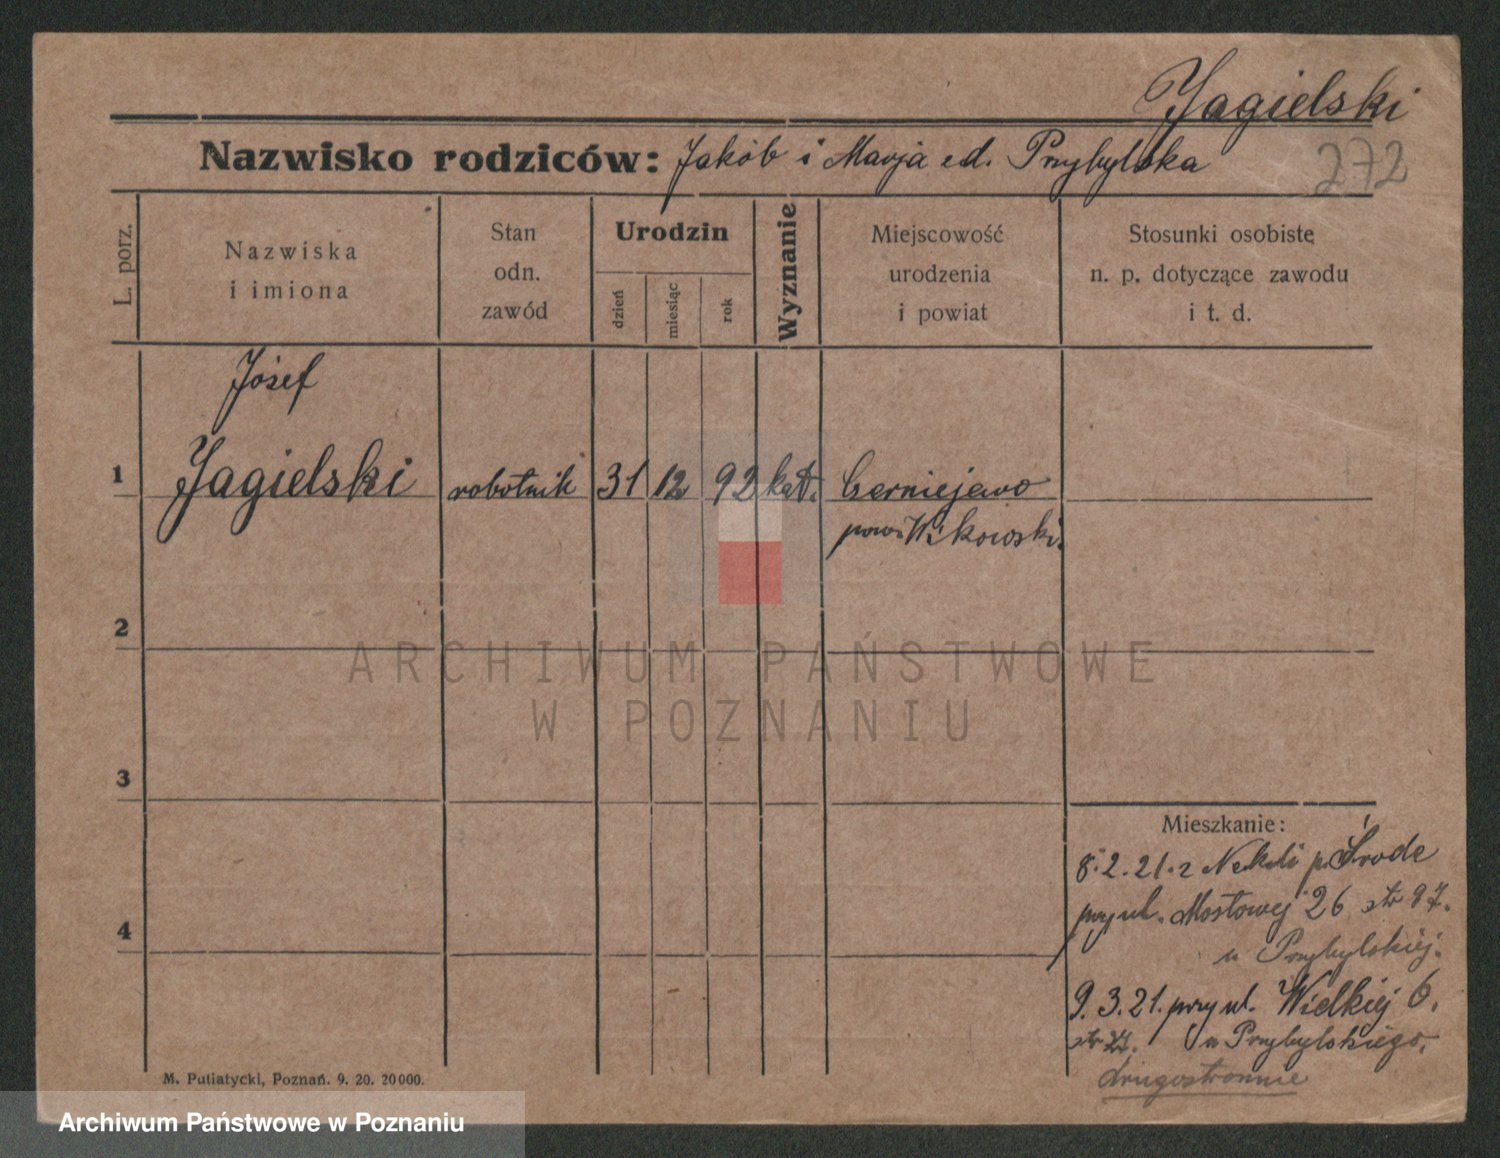 Jagielski
Nazwisko rodziców: Jakób i Marja zd. Przybylska
272
L. porz.
Nazwiska
i imiona
Stan
odn.
zawód
Urodzin
dzień
miesiąc
rok
Wyznanie
Miejscowość
urodzenia
i powiat
Stosunki osobistę
n. p. dotyczące zawodu
i t. d.
Józef
1 Jagielski robotnik 31 12 92 kat. Czerniejewo
pow. Witkowski.
2
3
4
Mieszkanie:
8.2.21. z Nekli p. Środe
przy ul. Mostowej 26 str
u Przybylskiej.
9.3.21. przy ul. Wielkiej 6.
u Przybylskiego,
drugostronnie
M. Putiatycki, Poznań. 9. 20. 20000.
ARCHIWUM PAŃSTWOWE
W POZNANIU
Archiwum Państwowe w Poznaniu